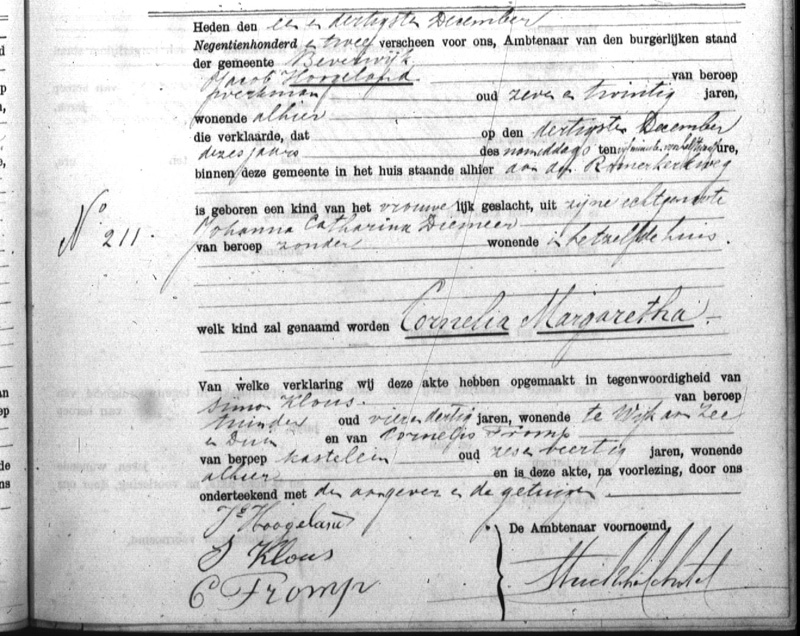 Heden den een en dertigsten December
Negentienhonderd en twee verscheen voor ons, Ambtenaar van den burgerlijken stand
der gemeente Beverwijk
Jacob Hoogeland van beroep
werkman oud zeven en twintig jaren,
wonende alhier
die verklaarde, dat op den dertigsten December
dezes jaars des nameddags ten ure,
binnen deze gemeente in het huis staande alhier aan den Romerkerkweg
No 211.
is geboren een kind van het vrouwelijk geslacht, uit zijne echtgenoote
Johanna Catharina Diemeer
van beroep zonder wonende in hetzelfde huis.
welk kind zal genaamd worden Cornelia Margaretha.
Van welke verklaring wij deze akte hebben opgemaakt in tegenwoordigheid van
Simon Klous. van beroep
tuinder oud vier en dertig jaren, wonende te Wijk aan Zee
en Duin en van Cornelis Tromp
van beroep kastelein oud zes en veertig jaren, wonende
alhier en is deze akte, na voorlezing, door ons
onderteekend met den aangever en de getuigen
Jb Hoogeland
S Klous
C Tromp
De Ambtenaar voornoemd,